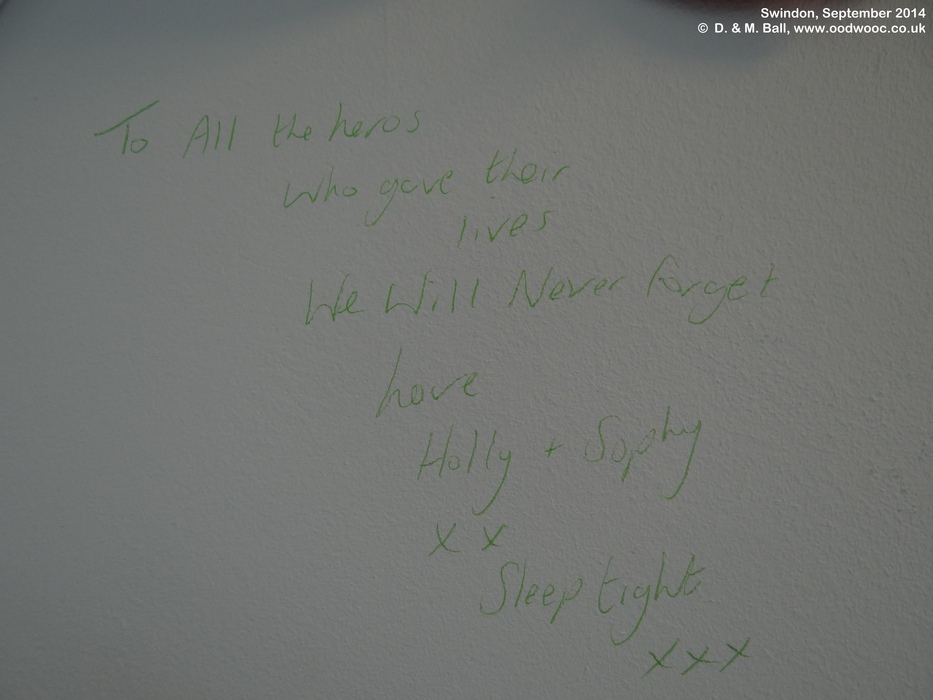 Swindon, September 2014
© D. & M. Ball, www.oodwooc.co.uk
To All the heros
Who gave their
lives
We Will Never forget
Love
Holly + Sophy
x x
Sleep tight
x x x